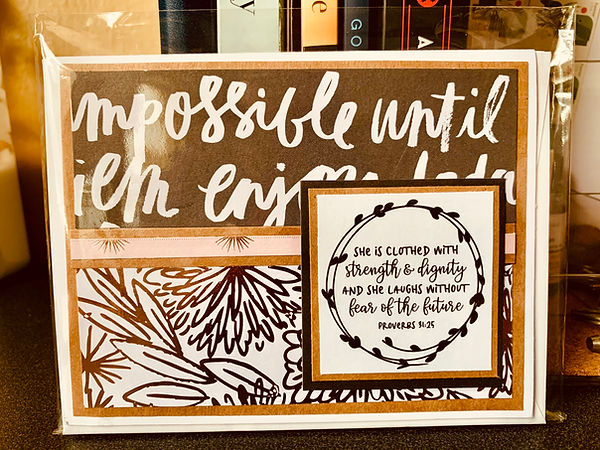 impossible until
iem enjoy
SHE IS CLOTHED WITH
strength & dignity
AND SHE LAUGHS WITHOUT
fear of the future
PROVERBS 31:25